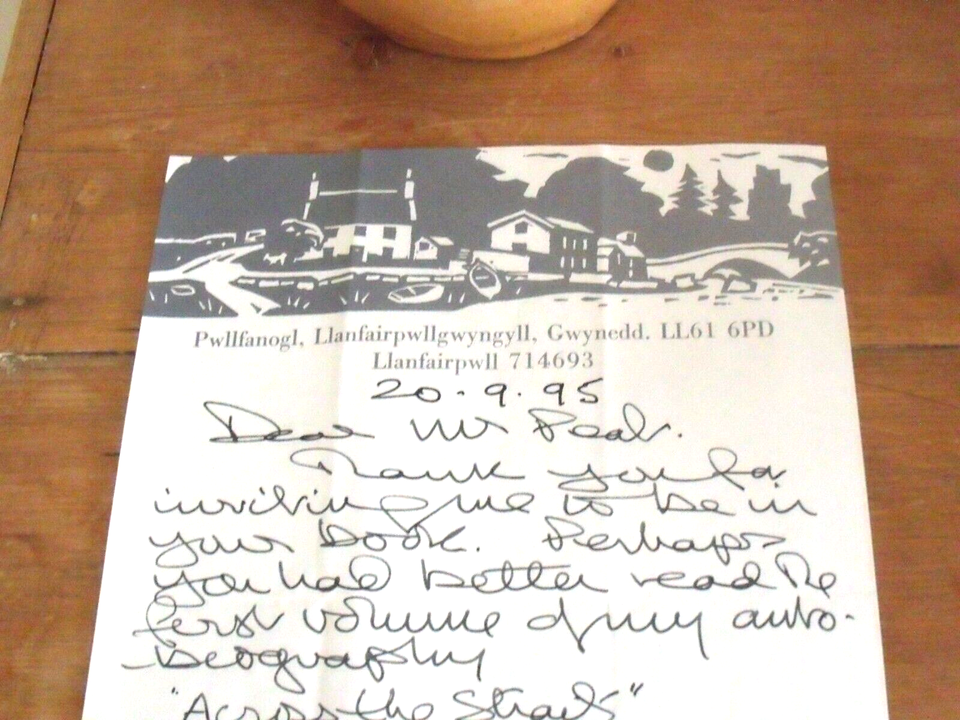 Pwllfanogl, Llanfairpwllgwyngyll, Gwynedd. LL61 6PD
Llanfairpwll 714693
20.9.95
Dear Mr
Thank you for
inviting me to be in
your book. Perhaps
you had better read the
first volume of my auto-
biography
"Across the Straits"